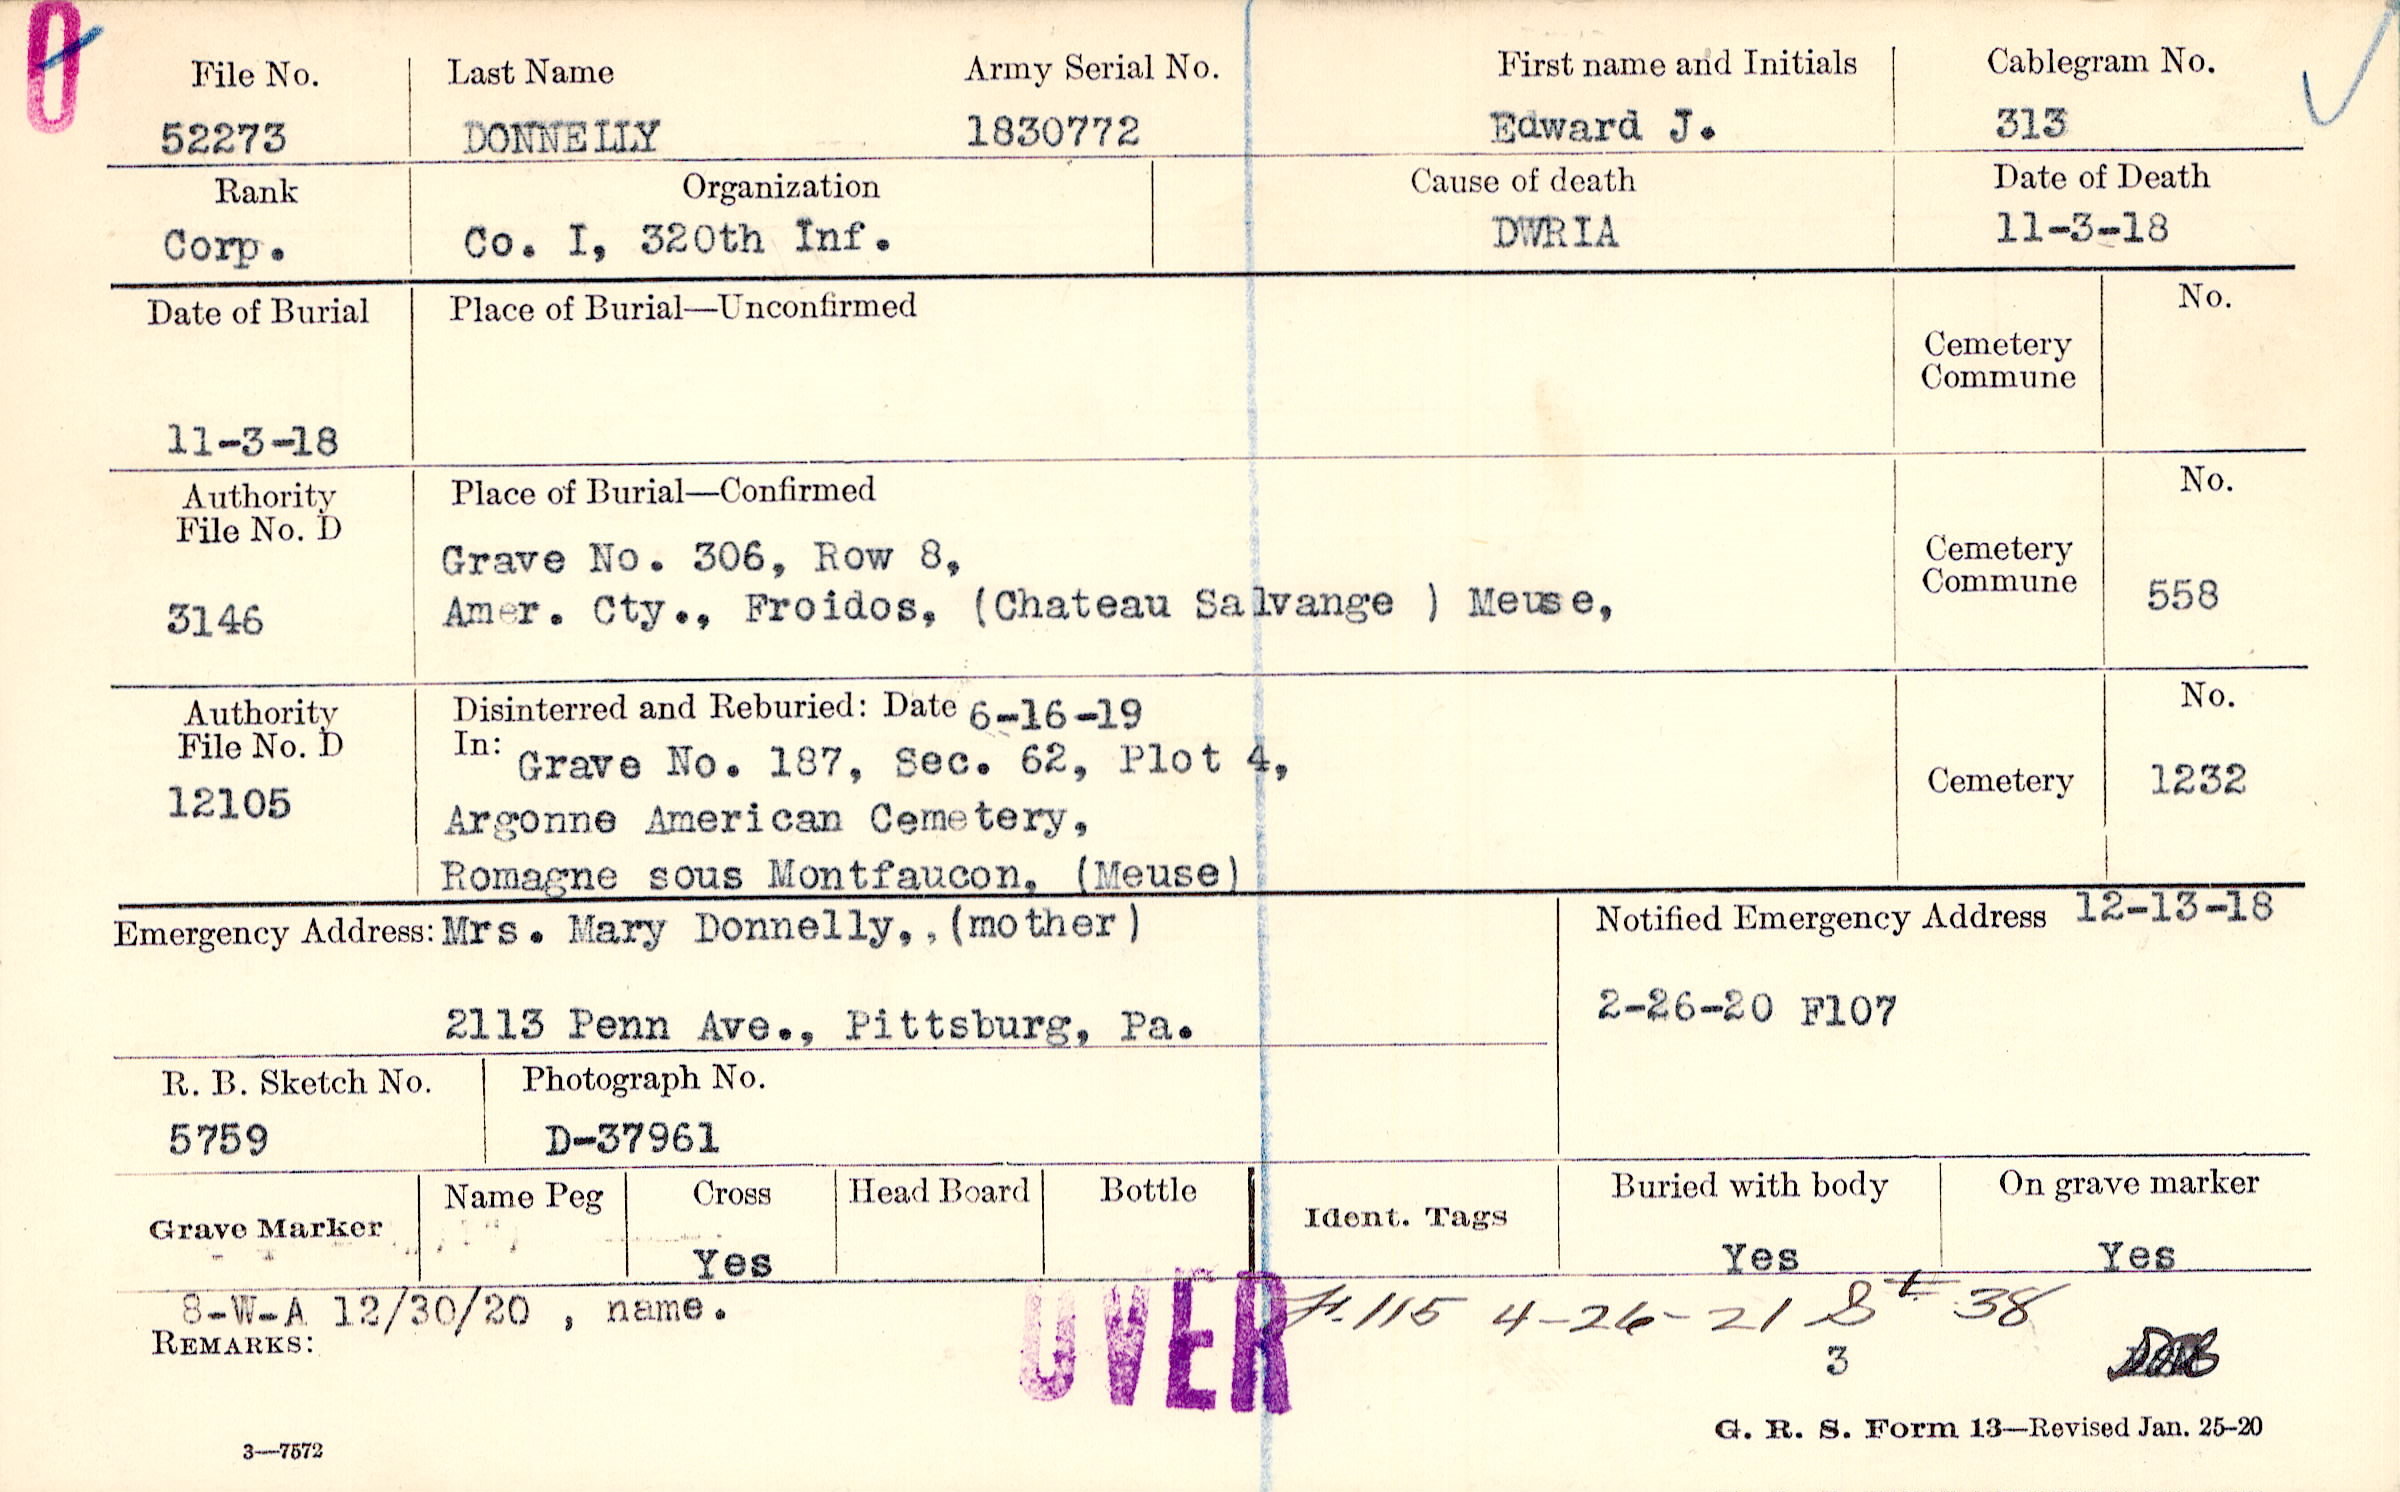 O
File No. Last Name Army Serial No. First name and Initials Cablegram No.
52273 DONNELLY 1830772 Edward J. 313
Rank Organization Cause of death Date of Death
Corp. Co. I, 320th Inf. DWRIA 11-3-18
Date of Burial Place of Burial—Unconfirmed No.
Cemetery
Commune
11-3-18
Authority Place of Burial—Confirmed No.
File No. D
Grave No. 306, Row 8, Cemetery
Commune 558
3146 Amer. Cty., Froidos, (Chateau Salvange ) Meuse,
Authority Disinterred and Reburied: Date 6-16-19 No.
File No. D In: Grave No. 187, Sec. 62, Plot 4,
12105 Argonne American Cemetery, Cemetery 1232
Romagne sous Montfaucon, (Meuse)
Emergency Address: Mrs. Mary Donnelly,, (mother) Notified Emergency Address 12-13-18
2113 Penn Ave., Pittsburg, Pa. 2-26-20 F107
R. B. Sketch No. Photograph No.
5759 D-37961
Grave Marker Name Peg Cross Head Board Bottle Ident. Tags Buried with body On grave marker
Yes Yes Yes
8-W-A 12/30/20 , name. 115 4-26-21 38
REMARKS: OVER 3
G. R. S. Form 13—Revised Jan. 25-20
3—7572